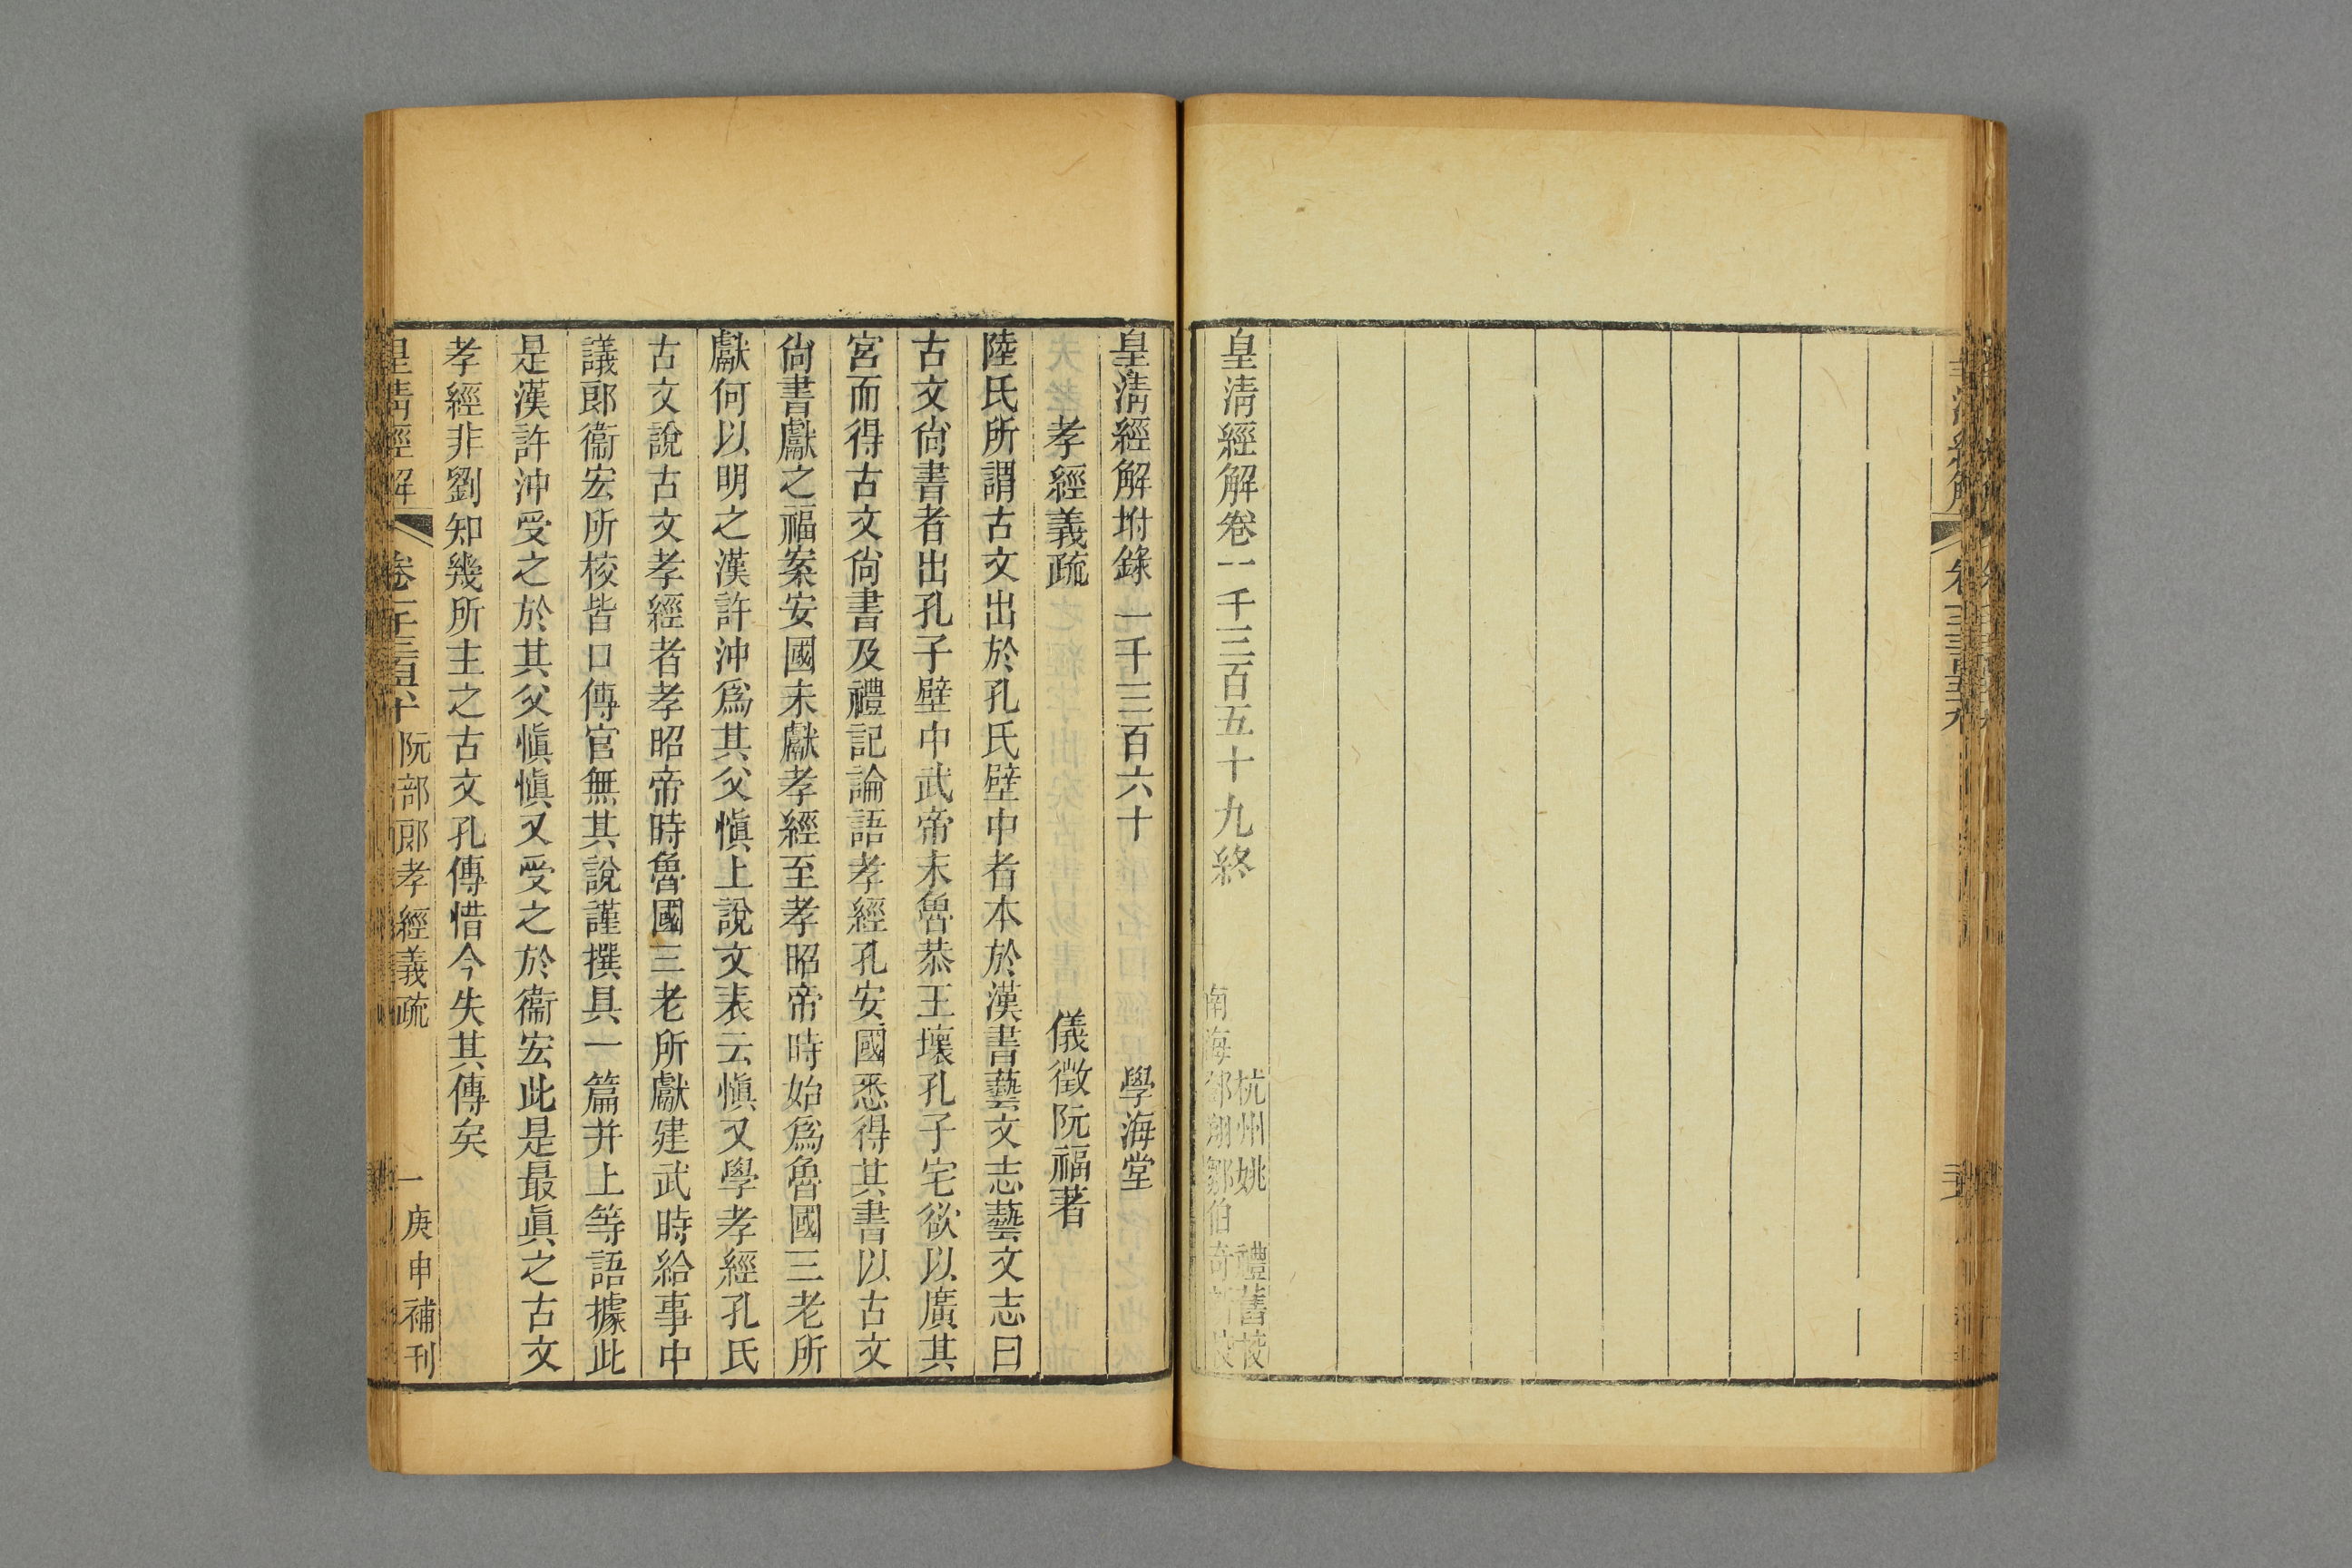 皇淸經解卷一千三百五十九終
杭州姚禮舊校
南海鄒伯奇
皇淸經解坿錄一千三百六十 學海堂
孝經義疏 儀徵阮福著
陸氏所謂古文出於孔氏壁中者本於漢書藝文志藝文志曰
古文尙書者出孔子壁中武帝末魯恭王壞孔子宅欲以廣其
宮而得古文尙書及禮記論語孝經孔安國悉得其書以古文
尙書獻之福案安國未獻孝經至孝昭帝時始爲魯國三老所
獻何以明之漢許沖爲其父愼上說文表云愼又學孝經孔氏
古文說古文孝經者孝昭帝時魯國三老所獻建武時給事中
議郎衞宏所校皆口傳官無其說謹撰具一篇并上等語據此
是漢許沖受之於其父愼愼又受之於衞宏此是最眞之古文
孝經非劉知幾所主之古文孔傳惜今失其傳矣
皇淸經解 卷一千三百六十 阮部郎孝經義疏 一 庚申補刊